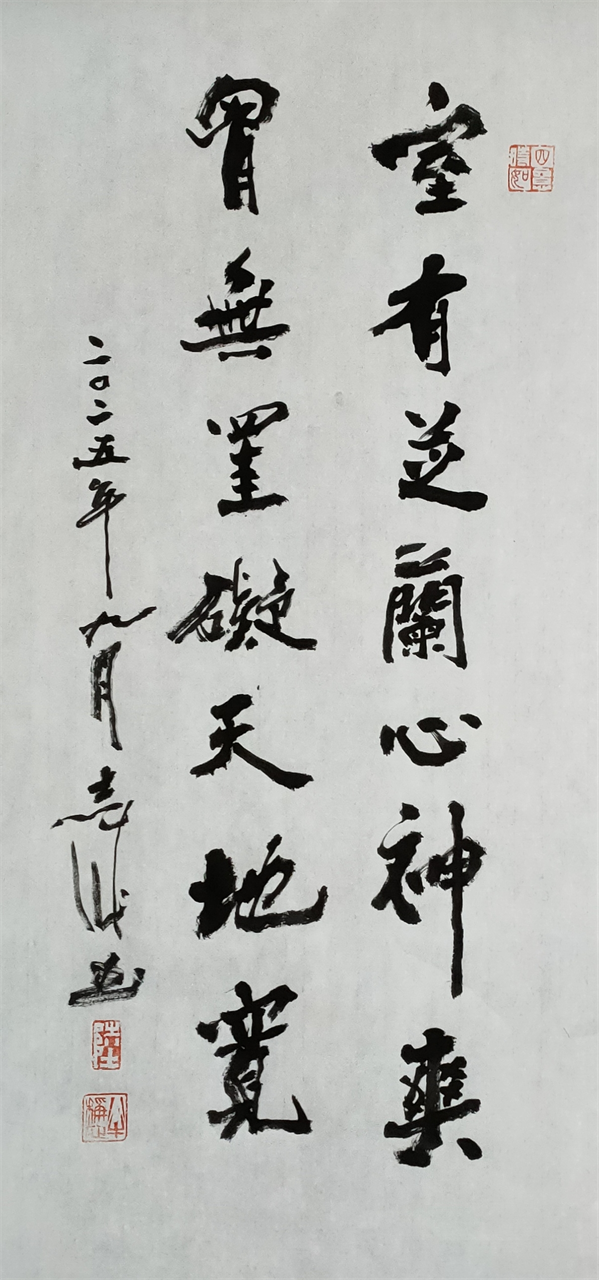 室有芝蘭心神爽
胷無罣礙天地寬
二〇二五年九月志